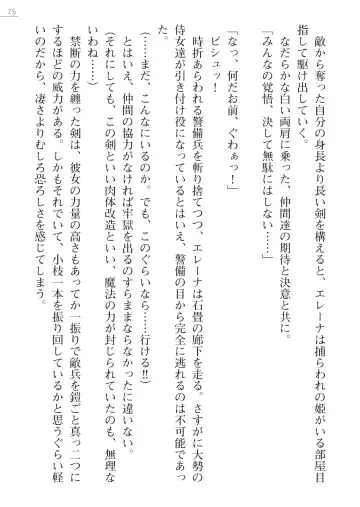 75
敵から奪った自分の身長より長い剣を構えると、エレーナは捕らわれの姫がいる部屋目
指して駆け出していく。
なだらかな白い両肩に乗った、仲間達の期待と決意と共に。
「みんなの覚悟、決して無駄にはしない……」
「なっ、何だお前、ぐわぁっ！」
ビシュッ！
時折あらわれる警備兵を斬り捨てつつ、エレーナは石畳の廊下を走る。さすがに大勢の
侍女達が引き付け役になっているとはいえ、警備の目から完全に逃れるのは不可能であっ
た。
（……まだ、こんなにいるのか。でも、このぐらいなら……行ける!!）
とはいえ、仲間の協力がなければ牢獄を出るのすらままならなかったに違いない。
（それにしても、この剣といい肉体改造といい、魔法の力が封じられていたのも、無理な
いわね……）
禁断の力を纏った剣は、彼女の力量の高さもあってか一振りで敵兵を鎧ごと真っ二つに
するほどの威力がある。しかもそれでいて、小枝一本を振り回しているかと思うぐらい軽
いのだから、凄さよりむしろ恐ろしさを感じてしまう。